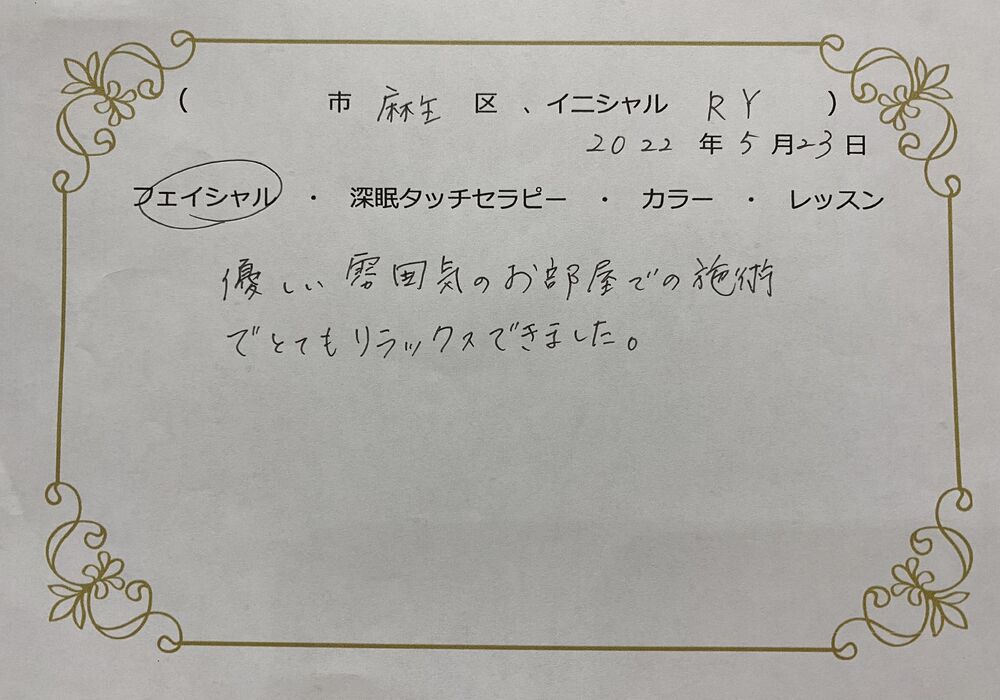 ( 市 麻生 区 、イニシャル RY )
2022 年 5 月 23 日
フェイシャル ・ 深眠タッチセラピー ・ カラー ・ レッスン
優しい雰囲気のお部屋での施術
でとてもリラックスできました。